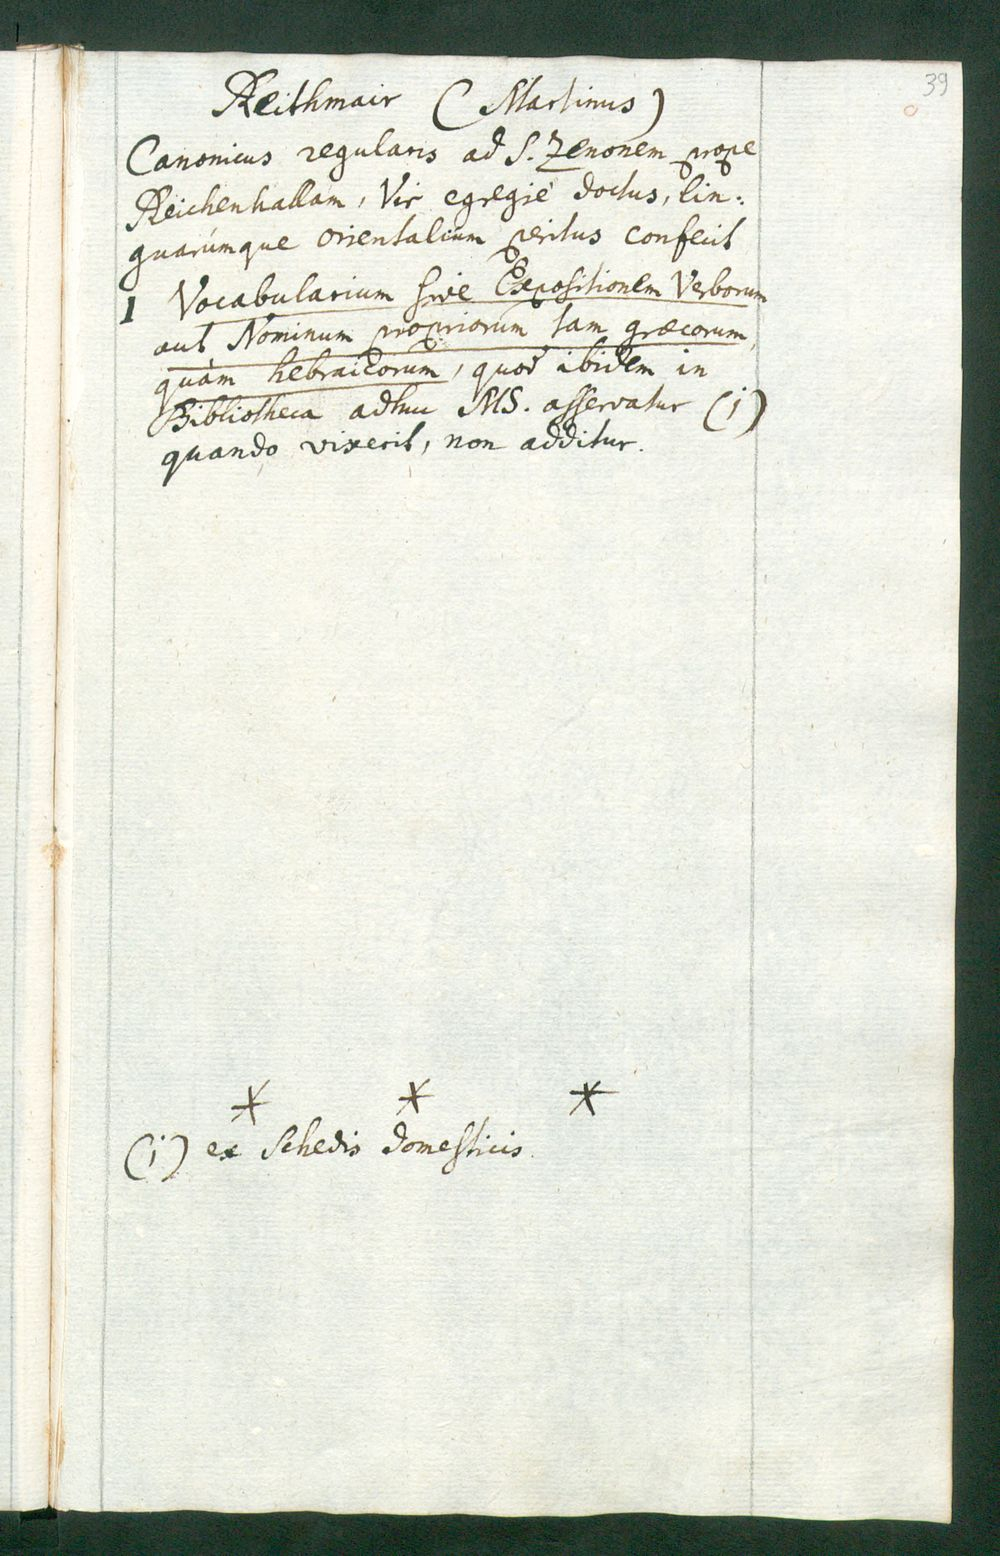 39
Reithmair (Martinus)
Canonicus regularis ad S. Zenonem prope
Reichenhallam, Vir egregiè doctus, lin:
guarúmque orientalium peritus confecit
1 Vocabularium sive Expositionem Verborum
aut Nominum propriorum tam græcorum,
quàm hebraicorum, quod ibidem in
Bibliotheca adhuc MS. asservatur (i)
quando vixerit, non additur.
* * *
(i) ex Schedis domesticis.